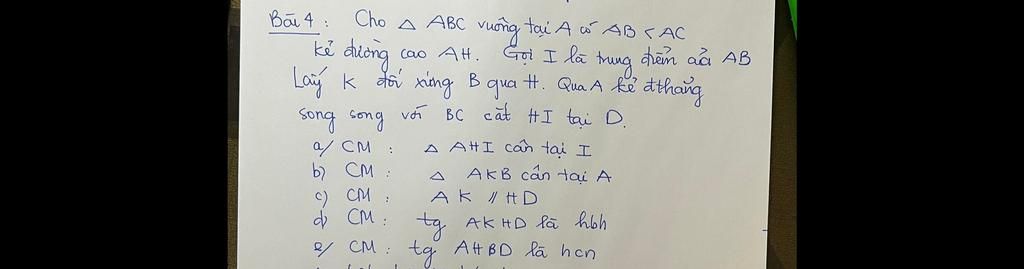 Bài 4 : Cho △ ABC vuông tại A có AB < AC
kẻ đường cao AH. Gọi I là trung điểm của AB
Lấy K đối xứng B qua H. Qua A kẻ đthẳng
song song với BC cắt HI tại D.
a/ CM : △ AHI cân tại I
b) CM : △ AKB cân tại A
c) CM : AK // HD
d) CM : tg AKHD là hbh
e/ CM : tg AHBD là hcn